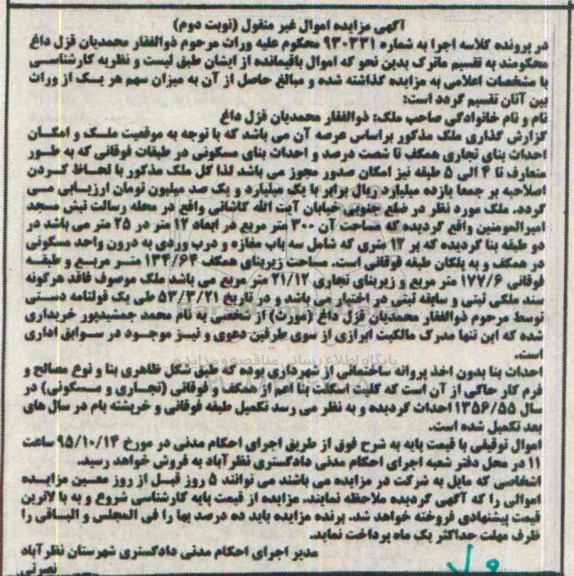 آگهی مزایده اموال غیر منقول (نوبت دوم)
در پرونده کلاسه اجرا به شماره ۹۳۰۳۳۱ محکوم علیه وراث مرحوم ذوالفقار محمدیان قزل داغ
محکومند به تقسیم ماترک بدین نحو که اموال باقیمانده از ایشان طبق لیست و نظریه کارشناسی
با مشخصات اعلامی به مزایده گذاشته شده و مبالغ حاصل از آن به میزان سهم هر یک از وراث
بین آنان تقسیم گردد است:
نام و نام خانوادگی صاحب ملک: ذوالفقار محمدیان قزل داغ
گزارش گذاری ملک مذکور براساس عرصه آن می باشد که با توجه به موقعیت ملک و امکان
احداث بنای تجاری همکف تا شصت درصد و احداث بنای مسکونی در طبقات فوقانی که به طور
متعارف تا ۴ الی ۵ طبقه نیز امکان صدور مجوز می باشد لذا کل ملک مذکور با لحاظ کردن
اصلاحیه بر جمعا یازده میلیارد ریال برابر با یک میلیارد و یک صد میلیون تومان ارزیابی می
گردد. ملک مورد نظر در ضلع جنوبی خیابان آیت الله کاشانی واقع در محله رسالت نبش مسجد
امیرالمومنین واقع گردیده که مساحت آن ۳۰۰ متر مربع در ابعاد ۱۲ متر در ۲۵ متر می باشد در
دو طبقه بنا گردیده که بر ۱۲ متری که شامل سه باب مغازه و درب وردی به درون واحد مسکونی
در همکف و به پلکان طبقه فوقانی است. مساحت زیربنای همکف ۱۳۴/۶۴ متر مربع و طبقه
فوقانی ۱۷۷/۶ متر مربع و زیربنای تجاری ۲۱/۱۲ متر مربع می باشد ملک موصوف فاقد هرگونه
سند ملکی ثبتی و سابقه ثبتی در اختیار می باشد و در تاریخ ۵۳/۳/۲۱ طی یک قولنامه دستی
توسط مرحوم ذوالفقار محمدیان قزل داغ (مورث) از شخصی به نام محمد جمشیدپور خریداری
شده که این تنها مدرک مالکیت ابرازی از سوی طرفین دعوی و نیز موجود در سوابق اداری
است.
احداث بنا بدون اخذ پروانه ساختمانی از شهرداری بوده که طبق شکل ظاهری بنا و نوع مصالح و
فرم کار حاکی از آن است که کلیت اسکلت بنا اعم از همکف و فوقانی (تجاری و مسکونی) در
سال ۱۳۵۶/۵۵ احداث گردیده و به نظر می رسد تکمیل طبقه فوقانی و خرپشته بام در سال های
بعد تکمیل شده است.
اموال توقیفی با قیمت پایه به شرح فوق از طریق اجرای احکام مدنی در مورخ ۹۵/۱۰/۱۴ ساعت
۱۱ در محل دفتر شعبه اجرای احکام مدنی دادگستری نظرآباد به فروش خواهد رسید.
اشخاصی که مایل به شرکت در مزایده می باشند می توانند ۵ روز قبل از روز معین مزایده
اموالی را که آگهی گردیده ملاحظه نمایند. مزایده از قیمت پایه کارشناسی شروع و به با لاترین
قیمت پیشنهادی فروخته خواهد شد. برنده مزایده باید ده درصد بها را فی المجلس و الباقی را
ظرف مهلت حداکثر یک ماه پرداخت نماید.
مدیر اجرای احکام مدنی دادگستری شهرستان نظرآباد
نصرتی